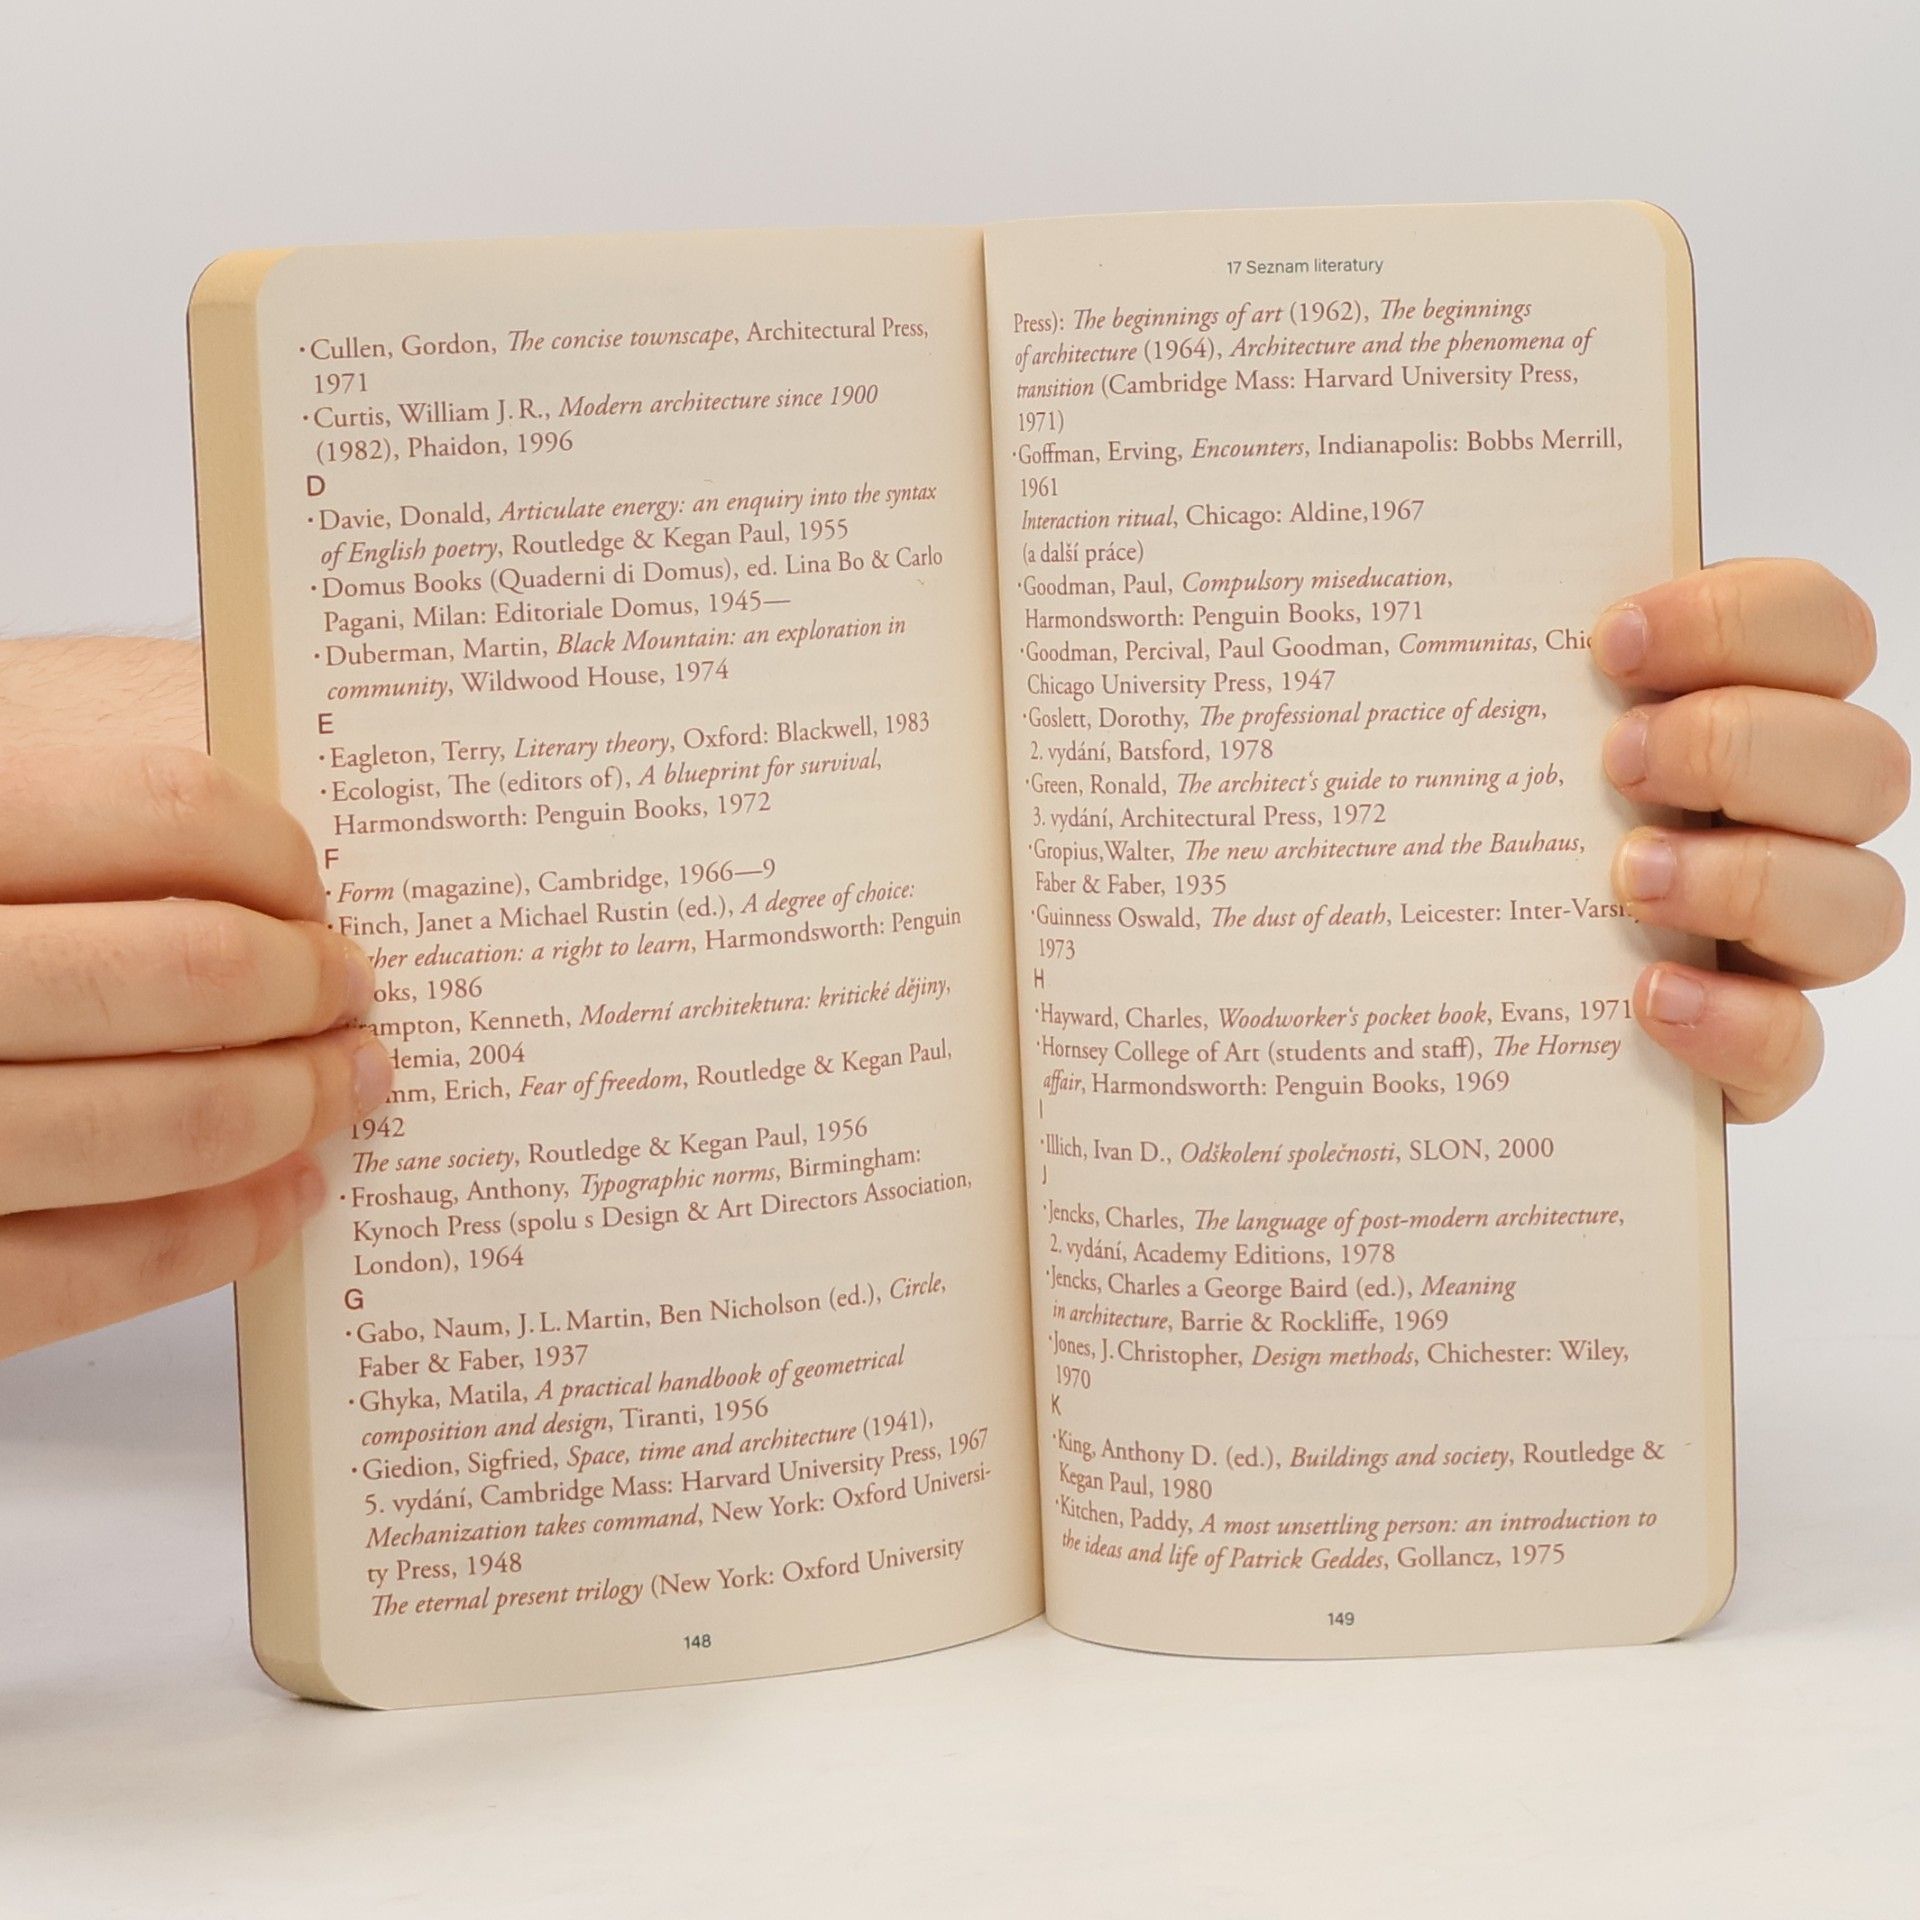 ·Cullen, Gordon, The concise townscape, Architectural Press,
1971
·Curtis, William J. R., Modern architecture since 1900
(1982), Phaidon, 1996
D
·Davie, Donald, Articulate energy: an enquiry into the syntax
of English poetry, Routledge & Kegan Paul, 1955
·Domus Books (Quaderni di Domus), ed. Lina Bo & Carlo
Pagani, Milan: Editoriale Domus, 1945—
·Duberman, Martin, Black Mountain: an exploration in
community, Wildwood House, 1974
E
·Eagleton, Terry, Literary theory, Oxford: Blackwell, 1983
·Ecologist, The (editors of), A blueprint for survival,
Harmondsworth: Penguin Books, 1972
F
·Form (magazine), Cambridge, 1966—9
·Finch, Janet a Michael Rustin (ed.), A degree of choice:
education: a right to learn, Harmondsworth: Penguin
1986
Kenneth, Moderní architektura: kritické dějiny,
2004
Erich, Fear of freedom, Routledge & Kegan Paul,
1942
The sane society, Routledge & Kegan Paul, 1956
·Froshaug, Anthony, Typographic norms, Birmingham:
Kynoch Press (spolu s Design & Art Directors Association,
London), 1964
G
·Gabo, Naum, J. L. Martin, Ben Nicholson (ed.), Circle,
Faber & Faber, 1937
·Ghyka, Matila, A practical handbook of geometrical
composition and design, Tiranti, 1956
·Giedion, Sigfried, Space, time and architecture (1941),
5. vydání, Cambridge Mass: Harvard University Press, 1967
Mechanization takes command, New York: Oxford Universi-
ty Press, 1948
The eternal present trilogy (New York: Oxford University
148
17 Seznam literatury
Press): The beginnings of art (1962), The beginnings
of architecture (1964), Architecture and the phenomena of
transition (Cambridge Mass: Harvard University Press,
1971)
·Goffman, Erving, Encounters, Indianapolis: Bobbs Merrill,
1961
Interaction ritual, Chicago: Aldine,1967
(a další práce)
·Goodman, Paul, Compulsory miseducation,
Harmondsworth: Penguin Books, 1971
·Goodman, Percival, Paul Goodman, Communitas,
Chicago University Press, 1947
·Goslett, Dorothy, The professional practice of design,
2. vydání, Batsford, 1978
·Green, Ronald, The architect‘s guide to running a job,
3. vydání, Architectural Press, 1972
·Gropius,Walter, The new architecture and the Bauhaus,
Faber & Faber, 1935
·Guinness Oswald, The dust of death, Leicester:
1973
H
·Hayward, Charles, Woodworker‘s pocket book, Evans, 1971
·Hornsey College of Art (students and staff), The Hornsey
affair, Harmondsworth: Penguin Books, 1969
I
·Illich, Ivan D., Odškolení společnosti, SLON, 2000
J
·Jencks, Charles, The language of post-modern architecture,
2. vydání, Academy Editions, 1978
·Jencks, Charles a George Baird (ed.), Meaning
in architecture, Barrie & Rockliffe, 1969
·Jones, J. Christopher, Design methods, Chichester: Wiley,
1970
K
·King, Anthony D. (ed.), Buildings and society, Routledge &
Kegan Paul, 1980
·Kitchen, Paddy, A most unsettling person: an introduction to
the ideas and life of Patrick Geddes, Gollancz, 1975
149